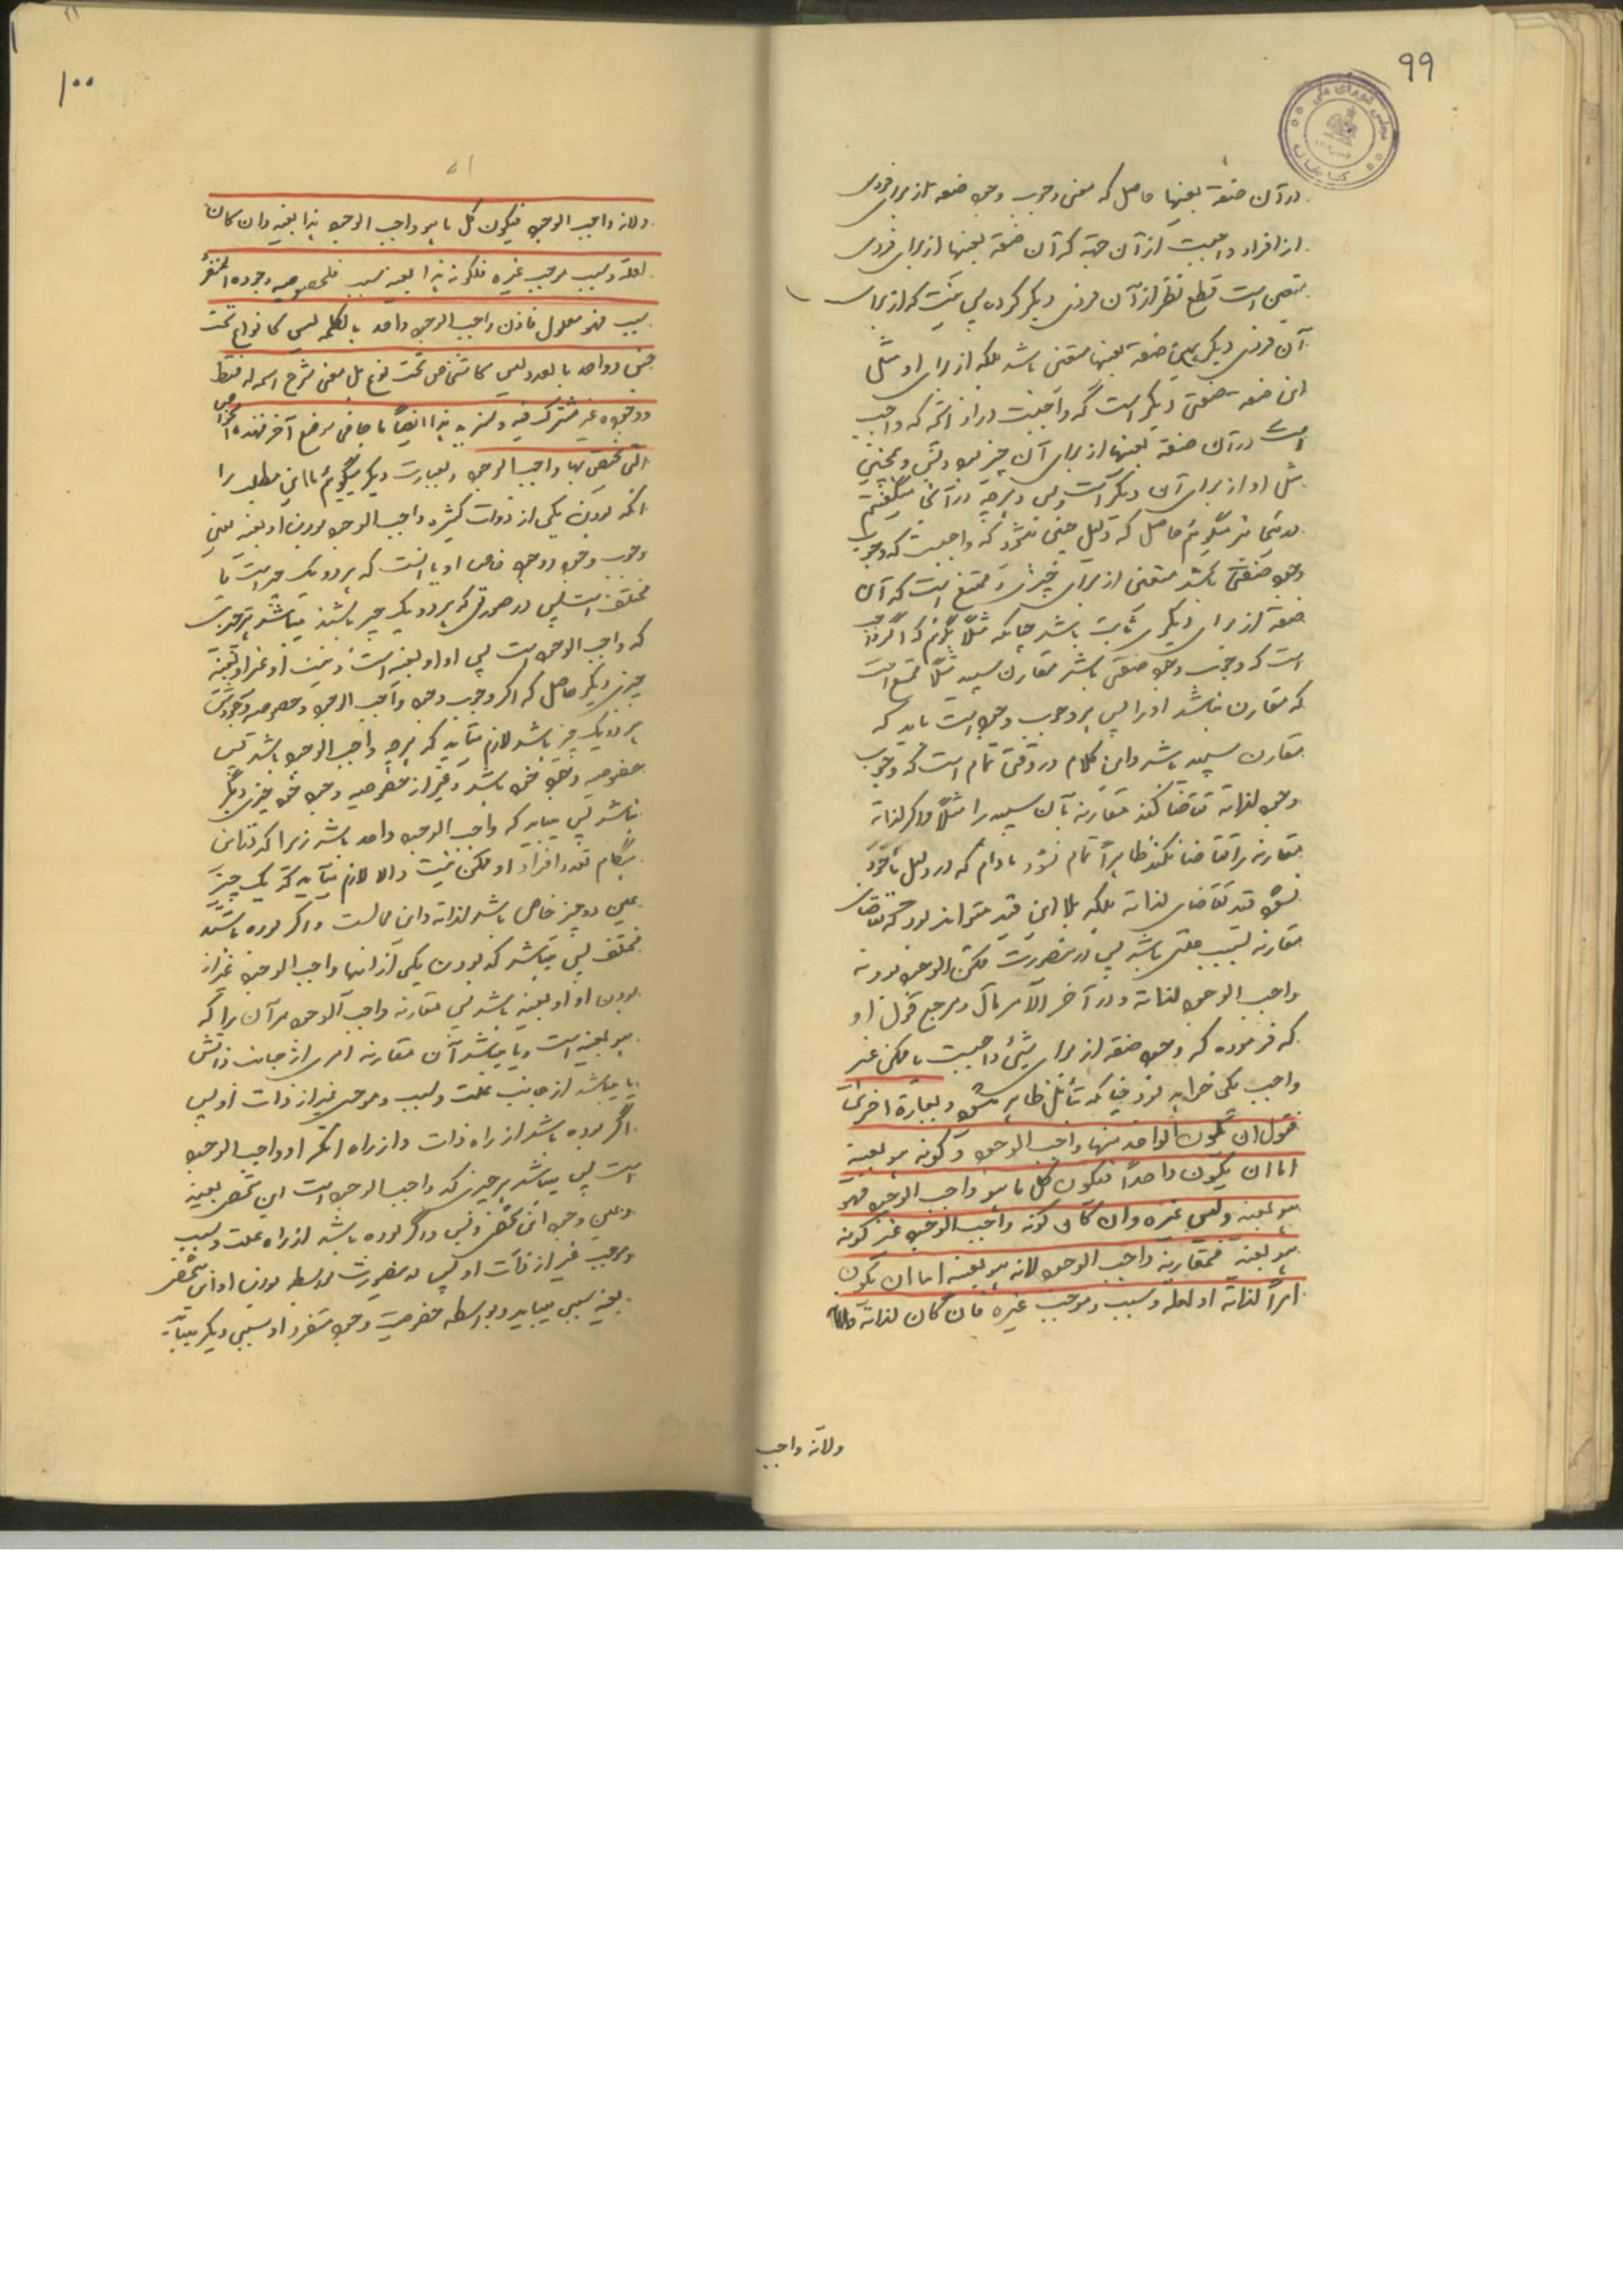 ٩٩
مجلس شورای ملی
در آن صفة بعینها حاصل که معنی وجوب وجود صفه از برای فردی
از افراد واجبست از آن جهة که آن صفة بعینها از برای فردی
متعین است قطع نظر از آن فردی دیگر کرده پس نیست که از برای
آن فردی دیگر همین صفة بعینها متعین باشد بلکه از برای او مثل
این صفة صفتی دیگر است که واجبست در او آنچه که واجب
است در آن صفة بعینها از برای آن چیز بود و بس و همچنین
مثل او از برای آن دیگر است و بس و هرچه در آنجا میگفتیم
در اینجا نیز میگوئیم حاصل که دلیل چنین میشود که واجبست که وجوب
وجود صفتی باشد متعین از برای چیزی و ممتنع است که آن
صفة از برای دیگری ثابت باشد چنانکه مثلاً بگوئیم که اگر واجب
است که وجوب وجود صفتی باشد مقارن سپید مثلاً ممتنع است
که مقارن نباشد او را پس هر وجوب وجود است باید که
مقارن سپید باشد و این کلام در وقتی تمام است که وجوب
وجود لذاته تقاضا کند مقارنه بآن سپید را مثلاً و اگر لذاته
مقارنه را تقاضا نکند ظاهراً تمام نشود مادام که در دلیل مأخوذ
نشود قید تقاضای لذاته بلکه بلا این قید میتواند بود که تقاضای
مقارنه بسبب علتی باشد پس در اینصورت ممکن الوجود بود نه
واجب الوجود لذاته و در آخر الامر مآل و مرجع قول او
که فرموده که وجود صفة از برای شیئی واجبست یا ممکن غیر
واجب یکی خواهد بود چنانکه بتأمل ظاهر میشود و بعبارة اخری
نقول ان یکون الواحد منها واجب الوجود و کونه هو بعینه
اما ان یکون واحداً فیکون کل ما هو واجب الوجود فهو
هو بعینه و لیس غیره و ان کان کونه واجب الوجود غیر کونه
هو بعینه فمقارنة واجب الوجود لانه هو بعینه اما ان یکون
امراً لذاته او لعلة و سبب و موجب غیره فان کان لذاته
ولانه واجب
١٠٠
ولانه واجب الوجود فیکون کل ما هو واجب الوجود هذا بعینه وان کان
لعلة و سبب موجب غیره فلکونه هذا بعینه سبب فلخصوصیه وجوده المنفرد
سبب فهو معلول فاذن واجب الوجود واحد بالکلمه لیس کانواع تحت
جنس و واحد بالعدد لیس کاشخاص تحت نوع بل معنی شرح اسمه له فقط
و وجوده غیر مشترک فیه و سنزید هذا ایضاحاً فی موضع آخر فهذه الخواص
التی یختص بها واجب الوجود و بعبارت دیگر میگوئیم ما این مطلب را
آنکه بودن یکی از ذوات کثیره واجب الوجود و بودن او بعینه یعنی
وجوب وجود و وجود خاص او یا آنست که هر دو یک چیز است یا
مختلف است پس در صورتی که هر دو یک چیز باشند میباشد هر چیزی
که واجب الوجود است پس او او بعینه است و نیست او غیر او بعینه
چیزی دیگر حاصل که اگر وجوب وجود واجب الوجود و خصوصیه وجودش
هر دو یک چیز باشد لازم میآید که هرچه واجب الوجود باشد پس
خصوصیه وجود خود باشد و غیر از خصوصیه وجود خود چیزی دیگر
نباشد پس میباید که واجب الوجود واحد باشد زیرا که در این
هنگام تعدد افراد او ممکن نیست والا لازم میآید که یک چیز
عین دو چیز خاص باشد لذاته و این محالست و اگر بوده باشند
مختلف پس میباشد که بودن یکی از اینها واجب الوجود غیر از
بودن او او بعینه باشد پس مقارنه واجب الوجود مر آن را که
هو بعینه است و یا میباشد آن مقارنه امری از جانب ذاتش
یا میباشد از جانب علت و سبب و موجبی غیر از ذات او پس
اگر بوده باشد از راه ذات و از راه آنکه او واجب الوجود
است پس میباشد هر چیزی که واجب الوجود است این شخص بعینه
و عین وجود این شخص و بس و اگر بوده باشد از راه علت و سبب
و موجب غیر از ذات او پس در اینصورت بواسطه بودن او این شخص
بعینه سببی میباید و بواسطه خصوصیت وجود منفرد او سببی دیگر میباید